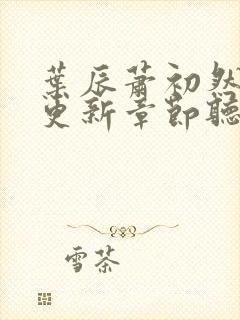 葉辰蕭初然
更新章節聽
雪茶